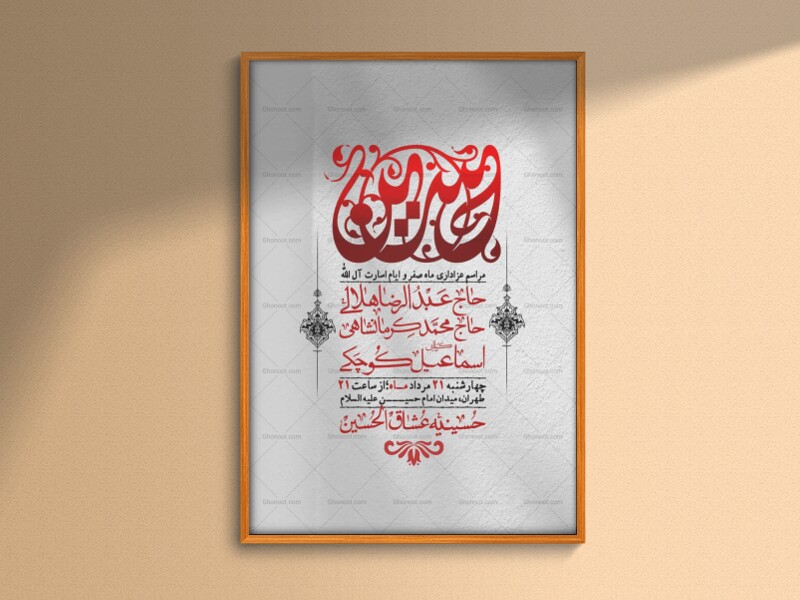 حسین
مراسم عزاداری ماه صفر و ایام اسارت آل الله
حاج عبدالرضا هلالی
حاج محمد کرمانشاهی
کربلایی
اسماعیل کوچکی
چهارشنبه 21 مرداد ماه؛ از ساعت 21
طهران، میدان امام حسین علیه السلام
حسینیه عشاق الحسین
Ghonoot.com